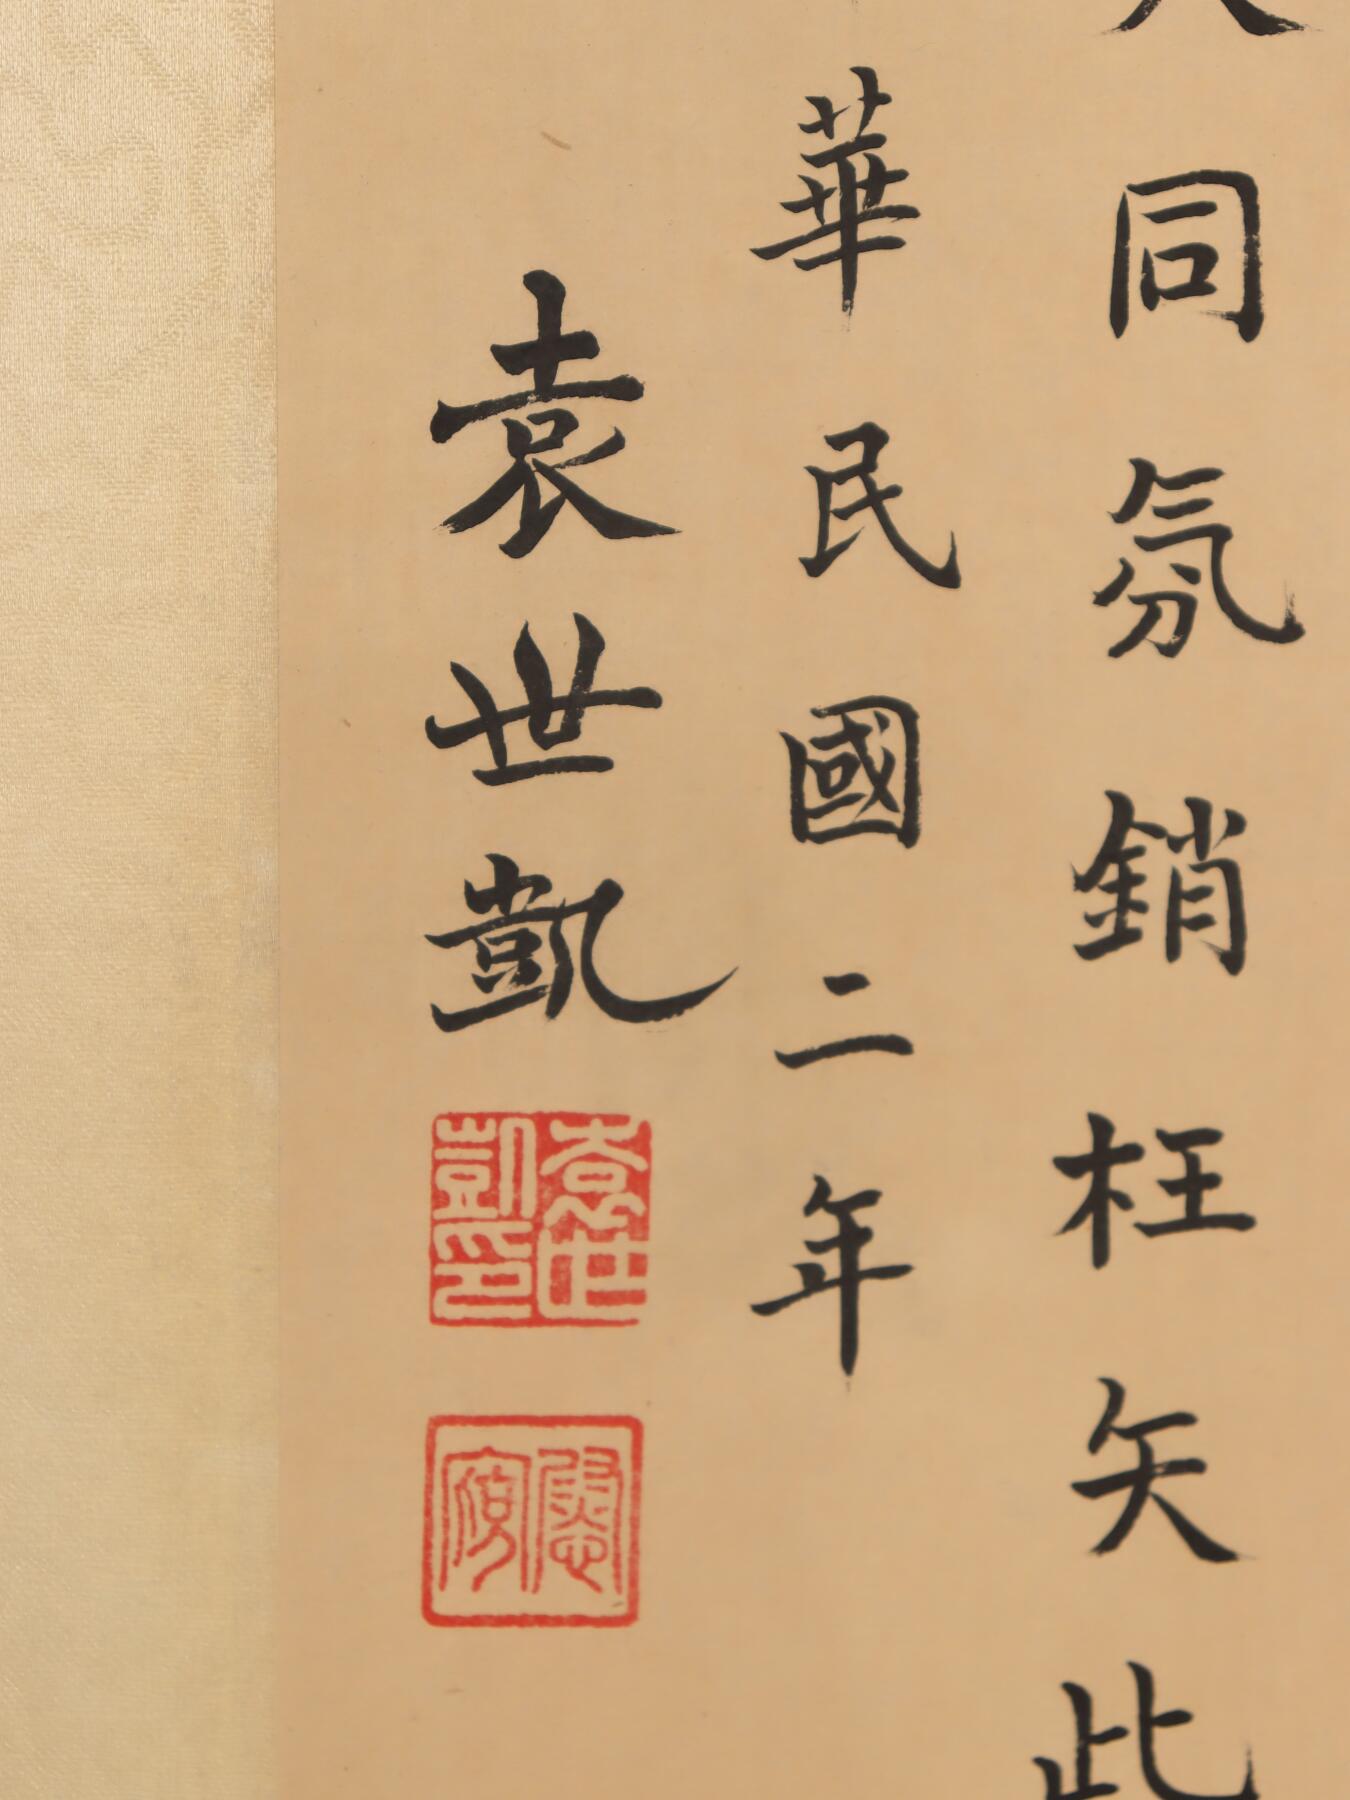 同氛銷枉矢此
華民國二年
袁世凱
袁世凱印